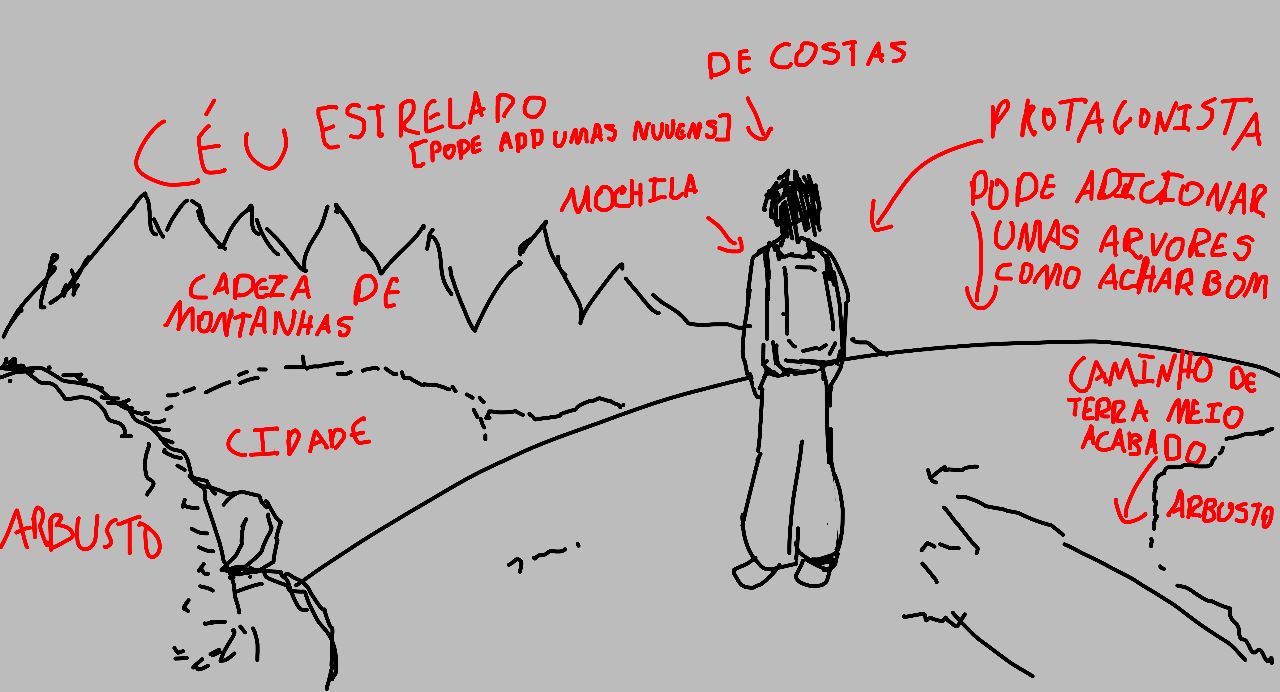 DE COSTAS
CÉU ESTRELADO
[PODE ADD UMAS NUVENS]
PROTAGONISTA
MOCHILA
PODE ADICIONAR
UMAS ARVORES
COMO ACHAR BOM
CADEIA DE
MONTANHAS
CAMINHO DE
TERRA MEIO
ACABADO
CIDADE
ARBUSTO
ARBUSTO